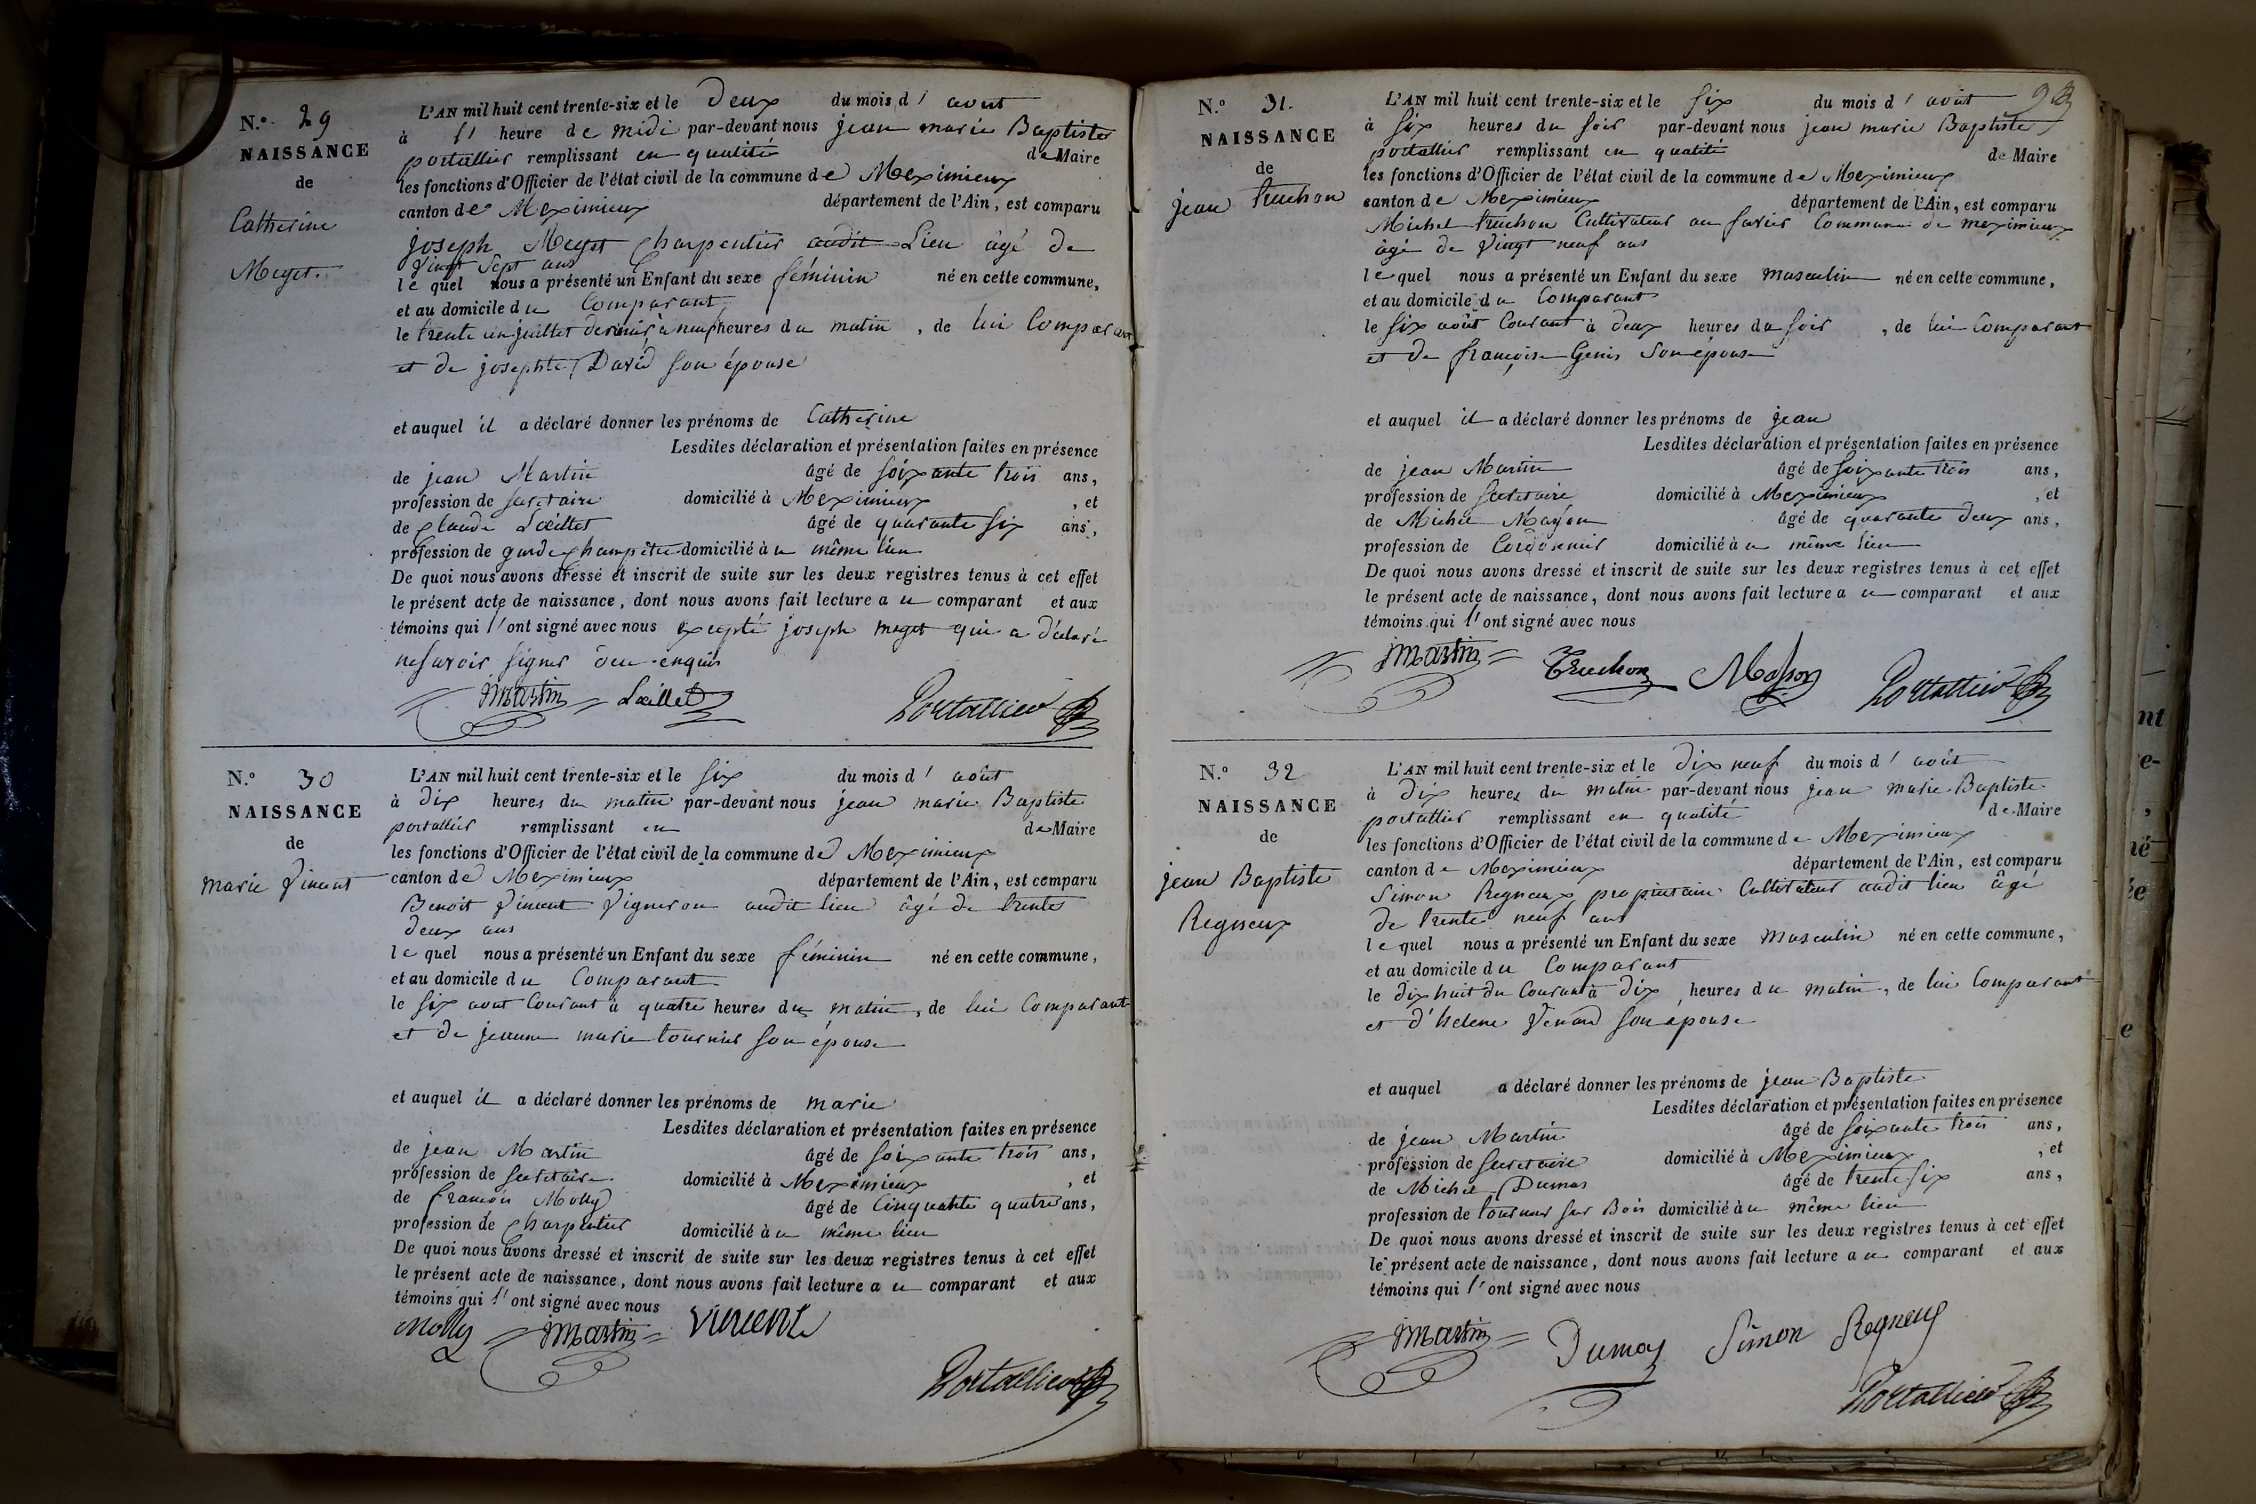 N.° 29
NAISSANCE
de
Catherine
Meget.
L'AN mil huit cent trente-six et le deux du mois d' aout
à l' heure de midi par-devant nous jean marie Baptiste
portallier remplissant en qualité de Maire
les fonctions d'Officier de l'état civil de la commune de Meximieux
canton de Meximieux département de l'Ain, est comparu
joseph Meget Charpentier audit Lieu âgé de
vingt sept ans
le quel nous a présenté un Enfant du sexe féminin né en cette commune,
et au domicile du Comparant
le trente un juillet dernier à neuf heures du matin, de lui Comparant
et de josephte David son épouse
et auquel il a déclaré donner les prénoms de Catherine
Lesdites déclaration et présentation faites en présence
de jean Martin âgé de soixante trois ans,
profession de secretaire domicilié à Meximieux, et
de Claude Laillet âgé de quarante six ans,
profession de garde champêtre domicilié à u même lieu
De quoi nous avons dressé et inscrit de suite sur les deux registres tenus à cet effet
le présent acte de naissance, dont nous avons fait lecture a u comparant et aux
témoins qui l' ont signé avec nous excepté joseph meget qui a déclaré
ne savoir signer de ce enquis
jmartin Laillet Portallier
N.° 30
NAISSANCE
de
marie Vincent
L'AN mil huit cent trente-six et le six du mois d' août
à dix heures du matin par-devant nous jean marie Baptiste
portallier remplissant en de Maire
les fonctions d'Officier de l'état civil de la commune de Meximieux
canton de Meximieux département de l'Ain, est comparu
Benoit Vincent Vigneron audit lieu âgé de trente
deux ans
le quel nous a présenté un Enfant du sexe féminin né en cette commune,
et au domicile du Comparant
le six aout Courant à quatre heures du matin, de lui Comparant
et de jeanne marie tournier son épouse
et auquel il a déclaré donner les prénoms de marie
Lesdites déclaration et présentation faites en présence
de jean Martin âgé de soixante trois ans,
profession de secretaire domicilié à Meximieux, et
de françois Molly âgé de Cinquante quatre ans,
profession de Charpentier domicilié à u même lieu
De quoi nous avons dressé et inscrit de suite sur les deux registres tenus à cet effet
le présent acte de naissance, dont nous avons fait lecture a u comparant et aux
témoins qui l' ont signé avec nous
Molly jmartin vincent
Portallier
N.° 31.
NAISSANCE
de
jean truchon
L'AN mil huit cent trente-six et le six du mois d' août
à six heures du soir par-devant nous jean marie Baptiste
portallier remplissant en qualité de Maire
les fonctions d'Officier de l'état civil de la commune de Meximieux
canton de Meximieux département de l'Ain, est comparu
Michel truchon Cultivateur au Commune de meximieux
âgé de vingt neuf ans
le quel nous a présenté un Enfant du sexe masculin né en cette commune,
et au domicile du Comparant
le six août Courant à deux heures du soir, de lui Comparant
et de françoise Genis son épouse
et auquel il a déclaré donner les prénoms de jean
Lesdites déclaration et présentation faites en présence
de jean Martin âgé de soixante trois ans,
profession de secretaire domicilié à Meximieux, et
de Michel Masson âgé de quarante deux ans,
profession de Cordonnier domicilié à u même lieu
De quoi nous avons dressé et inscrit de suite sur les deux registres tenus à cet effet
le présent acte de naissance, dont nous avons fait lecture a u comparant et aux
témoins qui l' ont signé avec nous
jmartin Truchon Masson Portallier
N.° 32
NAISSANCE
de
jean Baptiste
Regneux
L'AN mil huit cent trente-six et le dix neuf du mois d' août
à dix heures du matin par-devant nous jean marie Baptiste
portallier remplissant en qualité de Maire
les fonctions d'Officier de l'état civil de la commune de Meximieux
canton de Meximieux département de l'Ain, est comparu
Simon Regneux propriétaire Cultivateur audit lieu âgé
de trente neuf ans
le quel nous a présenté un Enfant du sexe Masculin né en cette commune,
et au domicile du Comparant
le dix huit du Courant à dix heures du matin, de lui Comparant
et d'helene Venard son épouse
et auquel a déclaré donner les prénoms de jean Baptiste
Lesdites déclaration et présentation faites en présence
de jean Martin âgé de soixante trois ans,
profession de secretaire domicilié à Meximieux, et
de Michel Dumas âgé de trente six ans,
profession de tourneur sur Bois domicilié à u même lieu
De quoi nous avons dressé et inscrit de suite sur les deux registres tenus à cet effet
le présent acte de naissance, dont nous avons fait lecture a u comparant et aux
témoins qui l' ont signé avec nous
jmartin Dumas Simon Regneux
Portallier